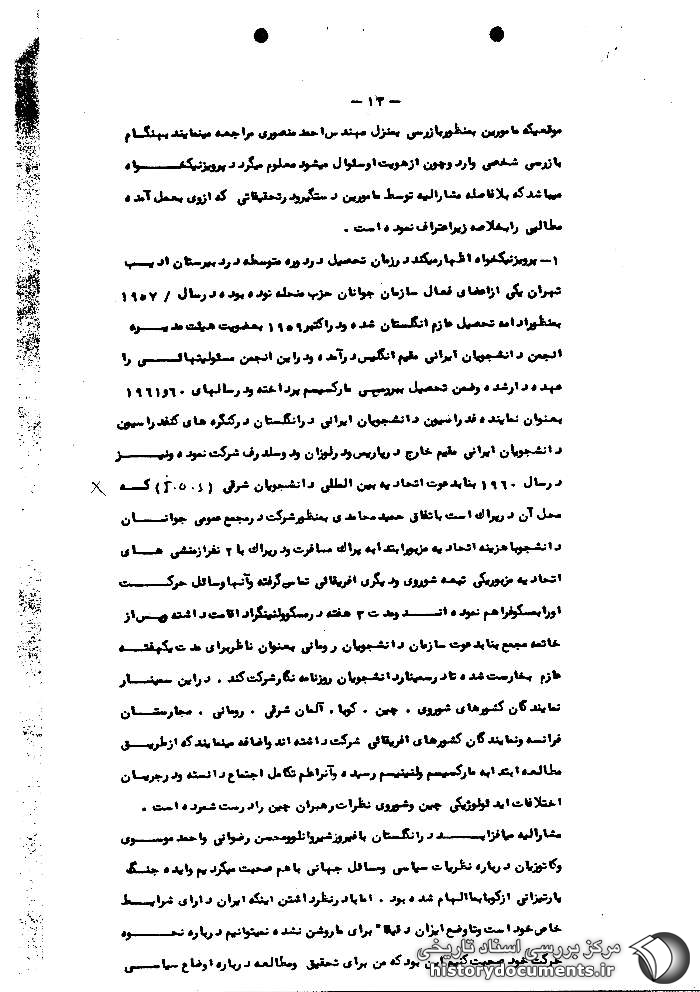 — ١٣ —
موقعیکه مامورین بمنظور بازرسی بمنزل مهندس احمد منصوری مراجعه مینمایند بهنگام
بازرسی شخصی وارد و چون از هویت او سئوال میشود معلوم میگردد پرویز نیکخواه
میباشد که بلافاصله مشارالیه توسط مامورین دستگیر و در تحقیقاتی که از وی بعمل آمده
مطالبی را بخلاصه زیر اعتراف نموده است .
١ـ پرویز نیکخواه اظهار میکند در زمان تحصیل در دوره متوسطه در دبیرستان ادیب
تهران یکی از اعضای فعال سازمان جوانان حزب منحله توده بوده در سال / ١٩٥٧
بمنظور ادامه تحصیل عازم انگلستان شده و در اکتبر ١٩٥٩ بعضویت هیئت مدیره
انجمن دانشجویان ایرانی مقیم انگلیس در آمده و در این انجمن مسئولیتهائی را
عهده دار شده و ضمن تحصیل ببررسی مارکسیسم پرداخته و در سالهای ٦٠و١٩٦١
بعنوان نماینده فدراسیون دانشجویان ایرانی در انگلستان در کنگره های کنفدراسیون
دانشجویان ایرانی مقیم خارج در پاریس و در لوزان و دوسلدرف شرکت نموده و نیز
در سال ١٩٦٠ بنا بدعوت اتحادیه بین المللی دانشجویان شرقی که
محل آن در پراک است باتفاق حمید محامدی بمنظور شرکت در مجمع عمومی جوانان
دانشجو با هزینه اتحادیه مزبور ابتدا به پراک مسافرت و در پراک با ٢ نفر از منشی های
اتحادیه مزبور یکی تبعه شوروی و دیگری افریقائی تماس گرفته و آنها وسائل حرکت
او را بمسکو فراهم نموده اند و مدت ٣ هفته در مسکو و لنینگراد اقامت داشته و پس از
خاتمه مجمع بنا بدعوت سازمان دانشجویان رومانی بعنوان ناظر برای مدت یکهفته
عازم بخارست شده تا در سمینار دانشجویان روزنامه نگار شرکت کند . در این سمینار
نمایندگان کشورهای شوروی . چین . کوبا . آلمان شرقی . رومانی . مجارستان
فرانسه و نمایندگان کشورهای افریقائی شرکت داشته اند و اضافه مینمایند که از طریق
مطالعه ابتدا به مارکسیسم و لنینیسم رسیده و آنرا علم تکامل اجتماع دانسته و در جریان
اختلافات ایدئولوژیکی چین و شوروی نظرات رهبران چین را درست شمرده است .
مشارالیه میافزاید در انگلستان با فیروز شیروانلو و محسن رضوانی و احمد موسوی
و کاتوزیان درباره نظریات سیاسی و مسائل جهانی با هم صحبت میکردیم و ایده جنگ
پارتیزانی از کوبا بما الهام شده بود . اما با در نظر داشتن اینکه ایران دارای شرایط
خاص خود است و تا وضع ایران دقیقا" برای ما روشن نشده نمیتوانیم درباره نحوه
حرکت خود صحبت کنیم این بود که من برای تحقیق و مطالعه درباره اوضاع سیاسی
مرکز بررسی اسناد تاریخی
historydocuments.ir